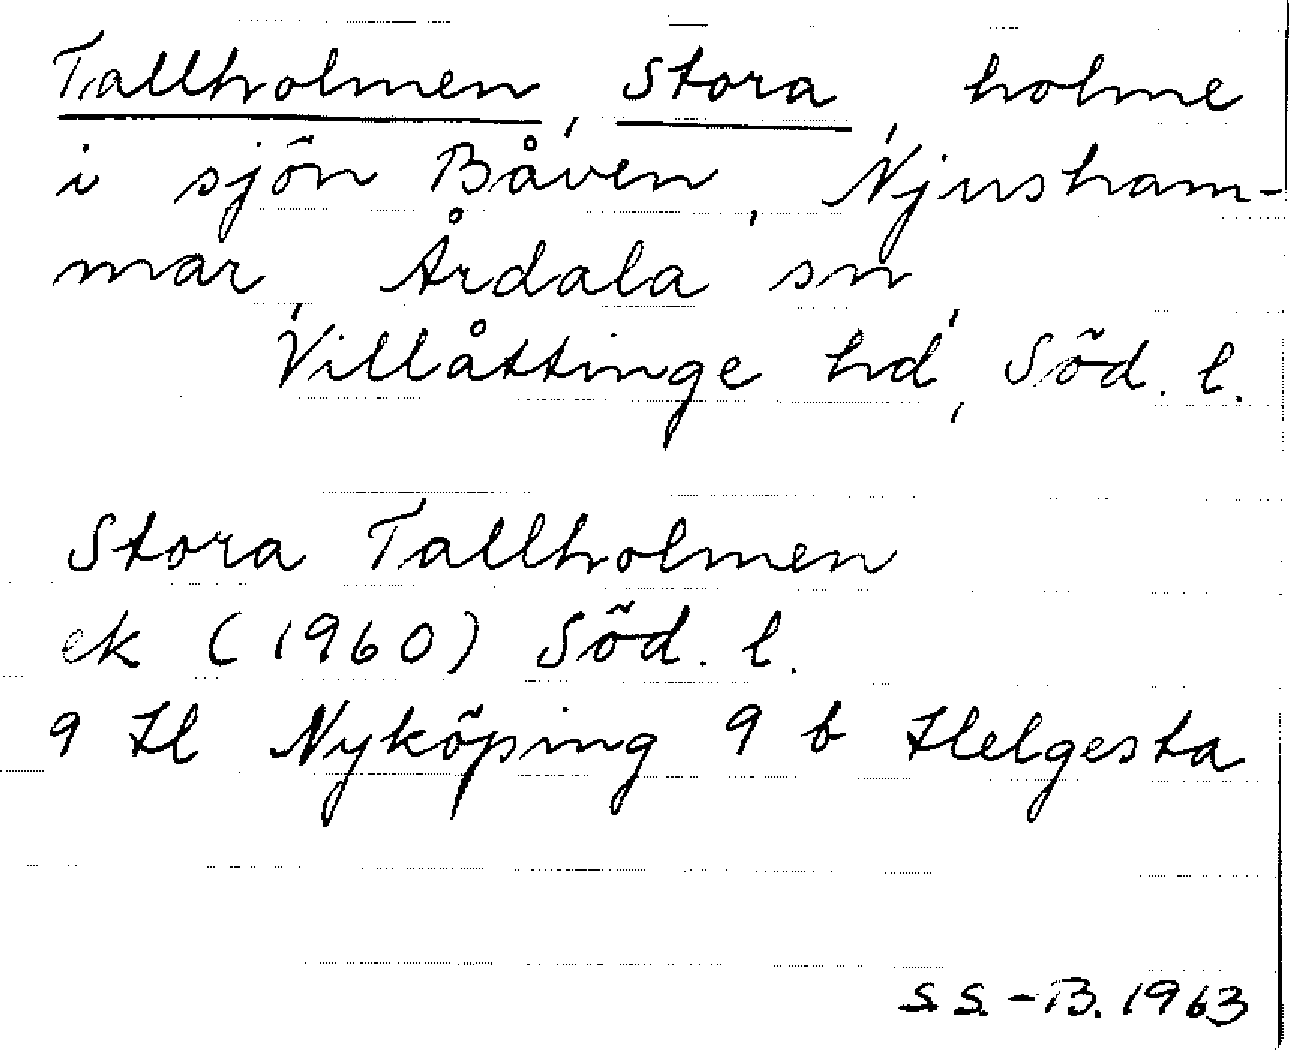 Tallholmen, Stora, holme
i sjön Båven, Njusham-
mar, Årdala sn,
Villåttinge hd, Söd. l.
Stora Tallholmen
ek (1960) Söd. l.
9 H Nyköping 9 b Helgesta
S.S.-B. 1963